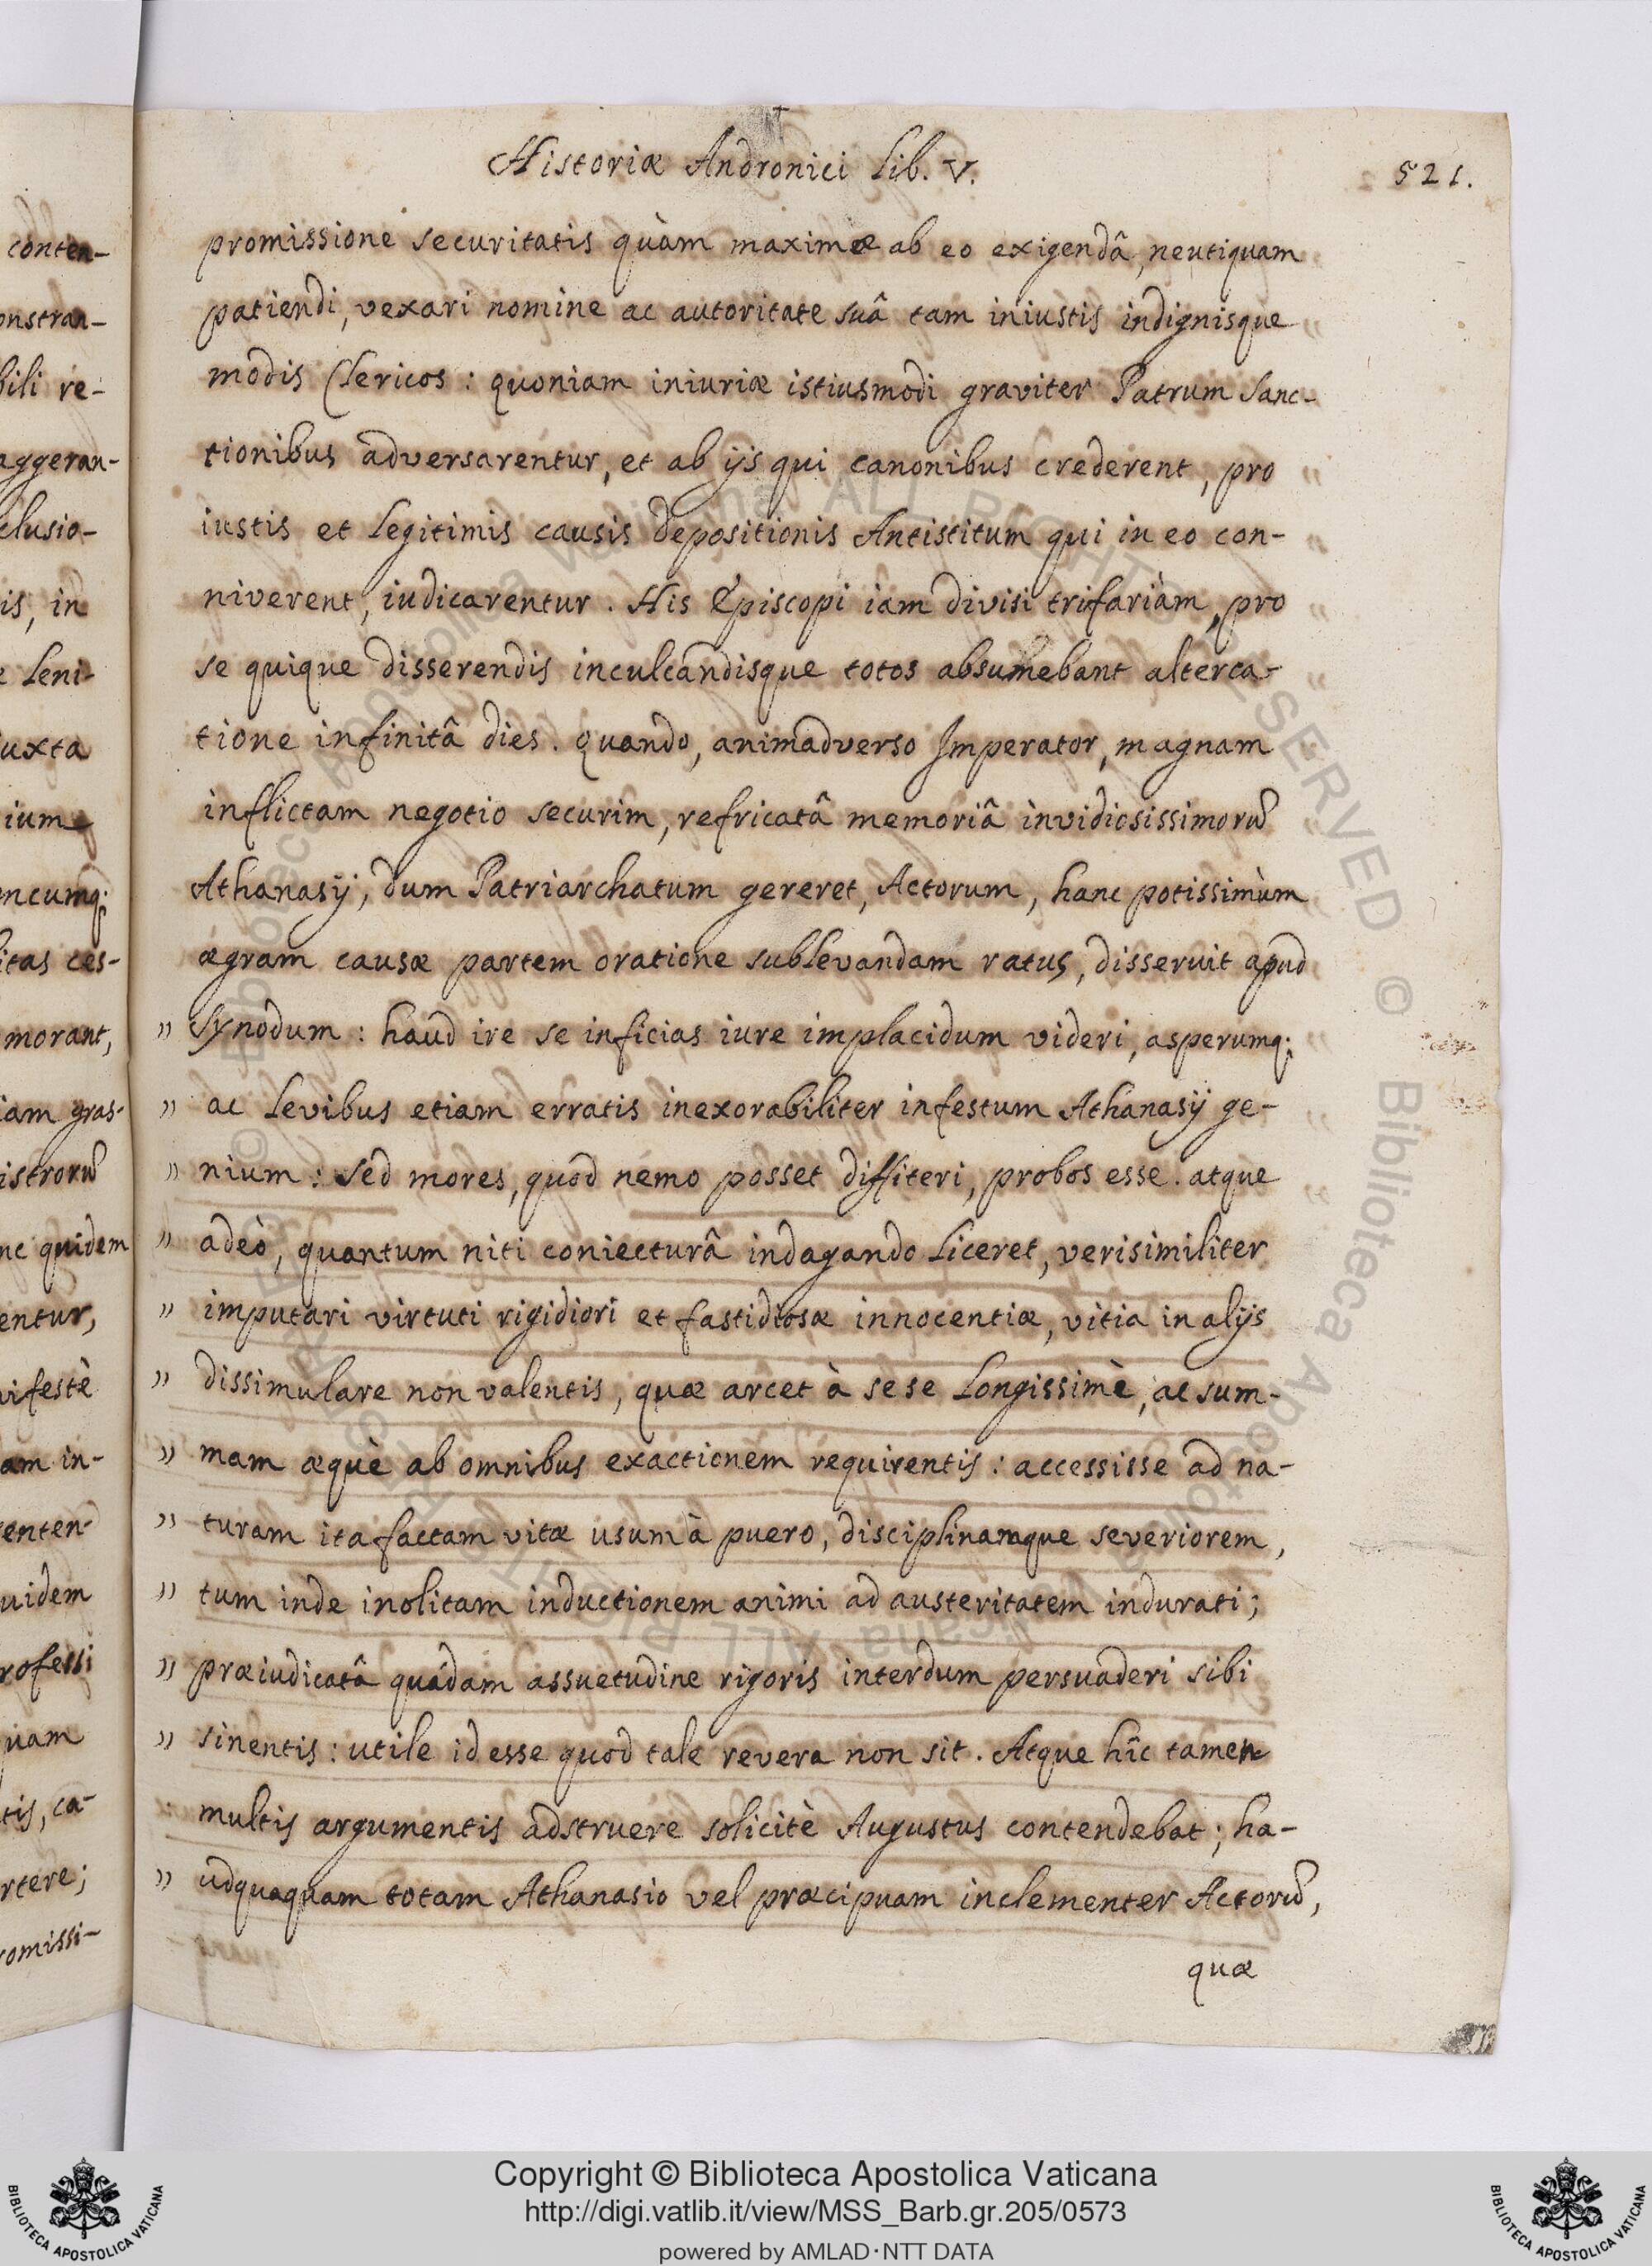 Historiæ Andronici Lib. V.
521.
promissione securitatis quàm maximæ ab eo exigendâ, neutiquam
patiendi, vexari nomine ac autoritate suâ tam iniustis indignisque
modis Clericos : quoniam iniuriæ istiusmodi graviter Patrum Sanc-
tionibus adversarentur, et ab ijs qui canonibus crederent, pro
iustis et legitimis causis depositionis Antistitum qui in eo con-
niverent, iudicarentur. His Episcopi iam divisi trifariàm, pro
se quique disserendis inculcandisque totos absumebant alterca-
tione infinitâ dies. Quando, animadverso Imperator, magnam
inflictam negotio securim, refricatâ memoriâ invidiosissimorũ
Athanasij, dum Patriarchatum gereret, Actorum, hanc potissimùm
ægram causæ partem oratione sublevandam ratus, disseruit apud
" Synodum : haud ire se inficias iure implacidum videri, asperumq;
" ac levibus etiam erratis inexorabiliter infestum Athanasij ge-
" nium : sed mores, quod nemo posset diffiteri, probos esse. atque
" adeò, quantum niti coniecturâ indagando liceret, verisimiliter
" imputari virtuti rigidiori et fastidiosæ innocentiæ, vitia in alijs
" dissimulare non valentis, quæ arcet à sese longissimè, ac sum-
" mam æquè ab omnibus exactionem requirentis : accessisse ad na-
" turam ita factam vitæ usum à puero, disciplinamque severiorem,
" tum inde inolitam inductionem animi ad austeritatem indurati;
" præiudicatâ quâdam assuetudine rigoris interdum persuaderi sibi
" sinentis : utile id esse quod tale revera non sit. Atque hîc tamen
multis argumentis adstruere solicitè Augustus contendebat; ha-
" udquaquam totam Athanasio vel præcipuam inclementer Actorũ,
quæ
conten-
onstran-
bili re-
aggeran-
clusio-
is, in
e leni-
uxta
ium
ncumq;
itas ces-
morant,
iam gras-
istrorũ
nc quidem
entur,
nifestè
am in-
enten-
uidem
rofessi
uam
tis, ca-
rtere;
romissi-
Copyright © Biblioteca Apostolica Vaticana
http://digi.vatlib.it/view/MSS_Barb.gr.205/0573
powered by AMLAD·NTT DATA
BIBLIOTECA APOSTOLICA VATICANA
BIBLIOTECA APOSTOLICA VATICANA